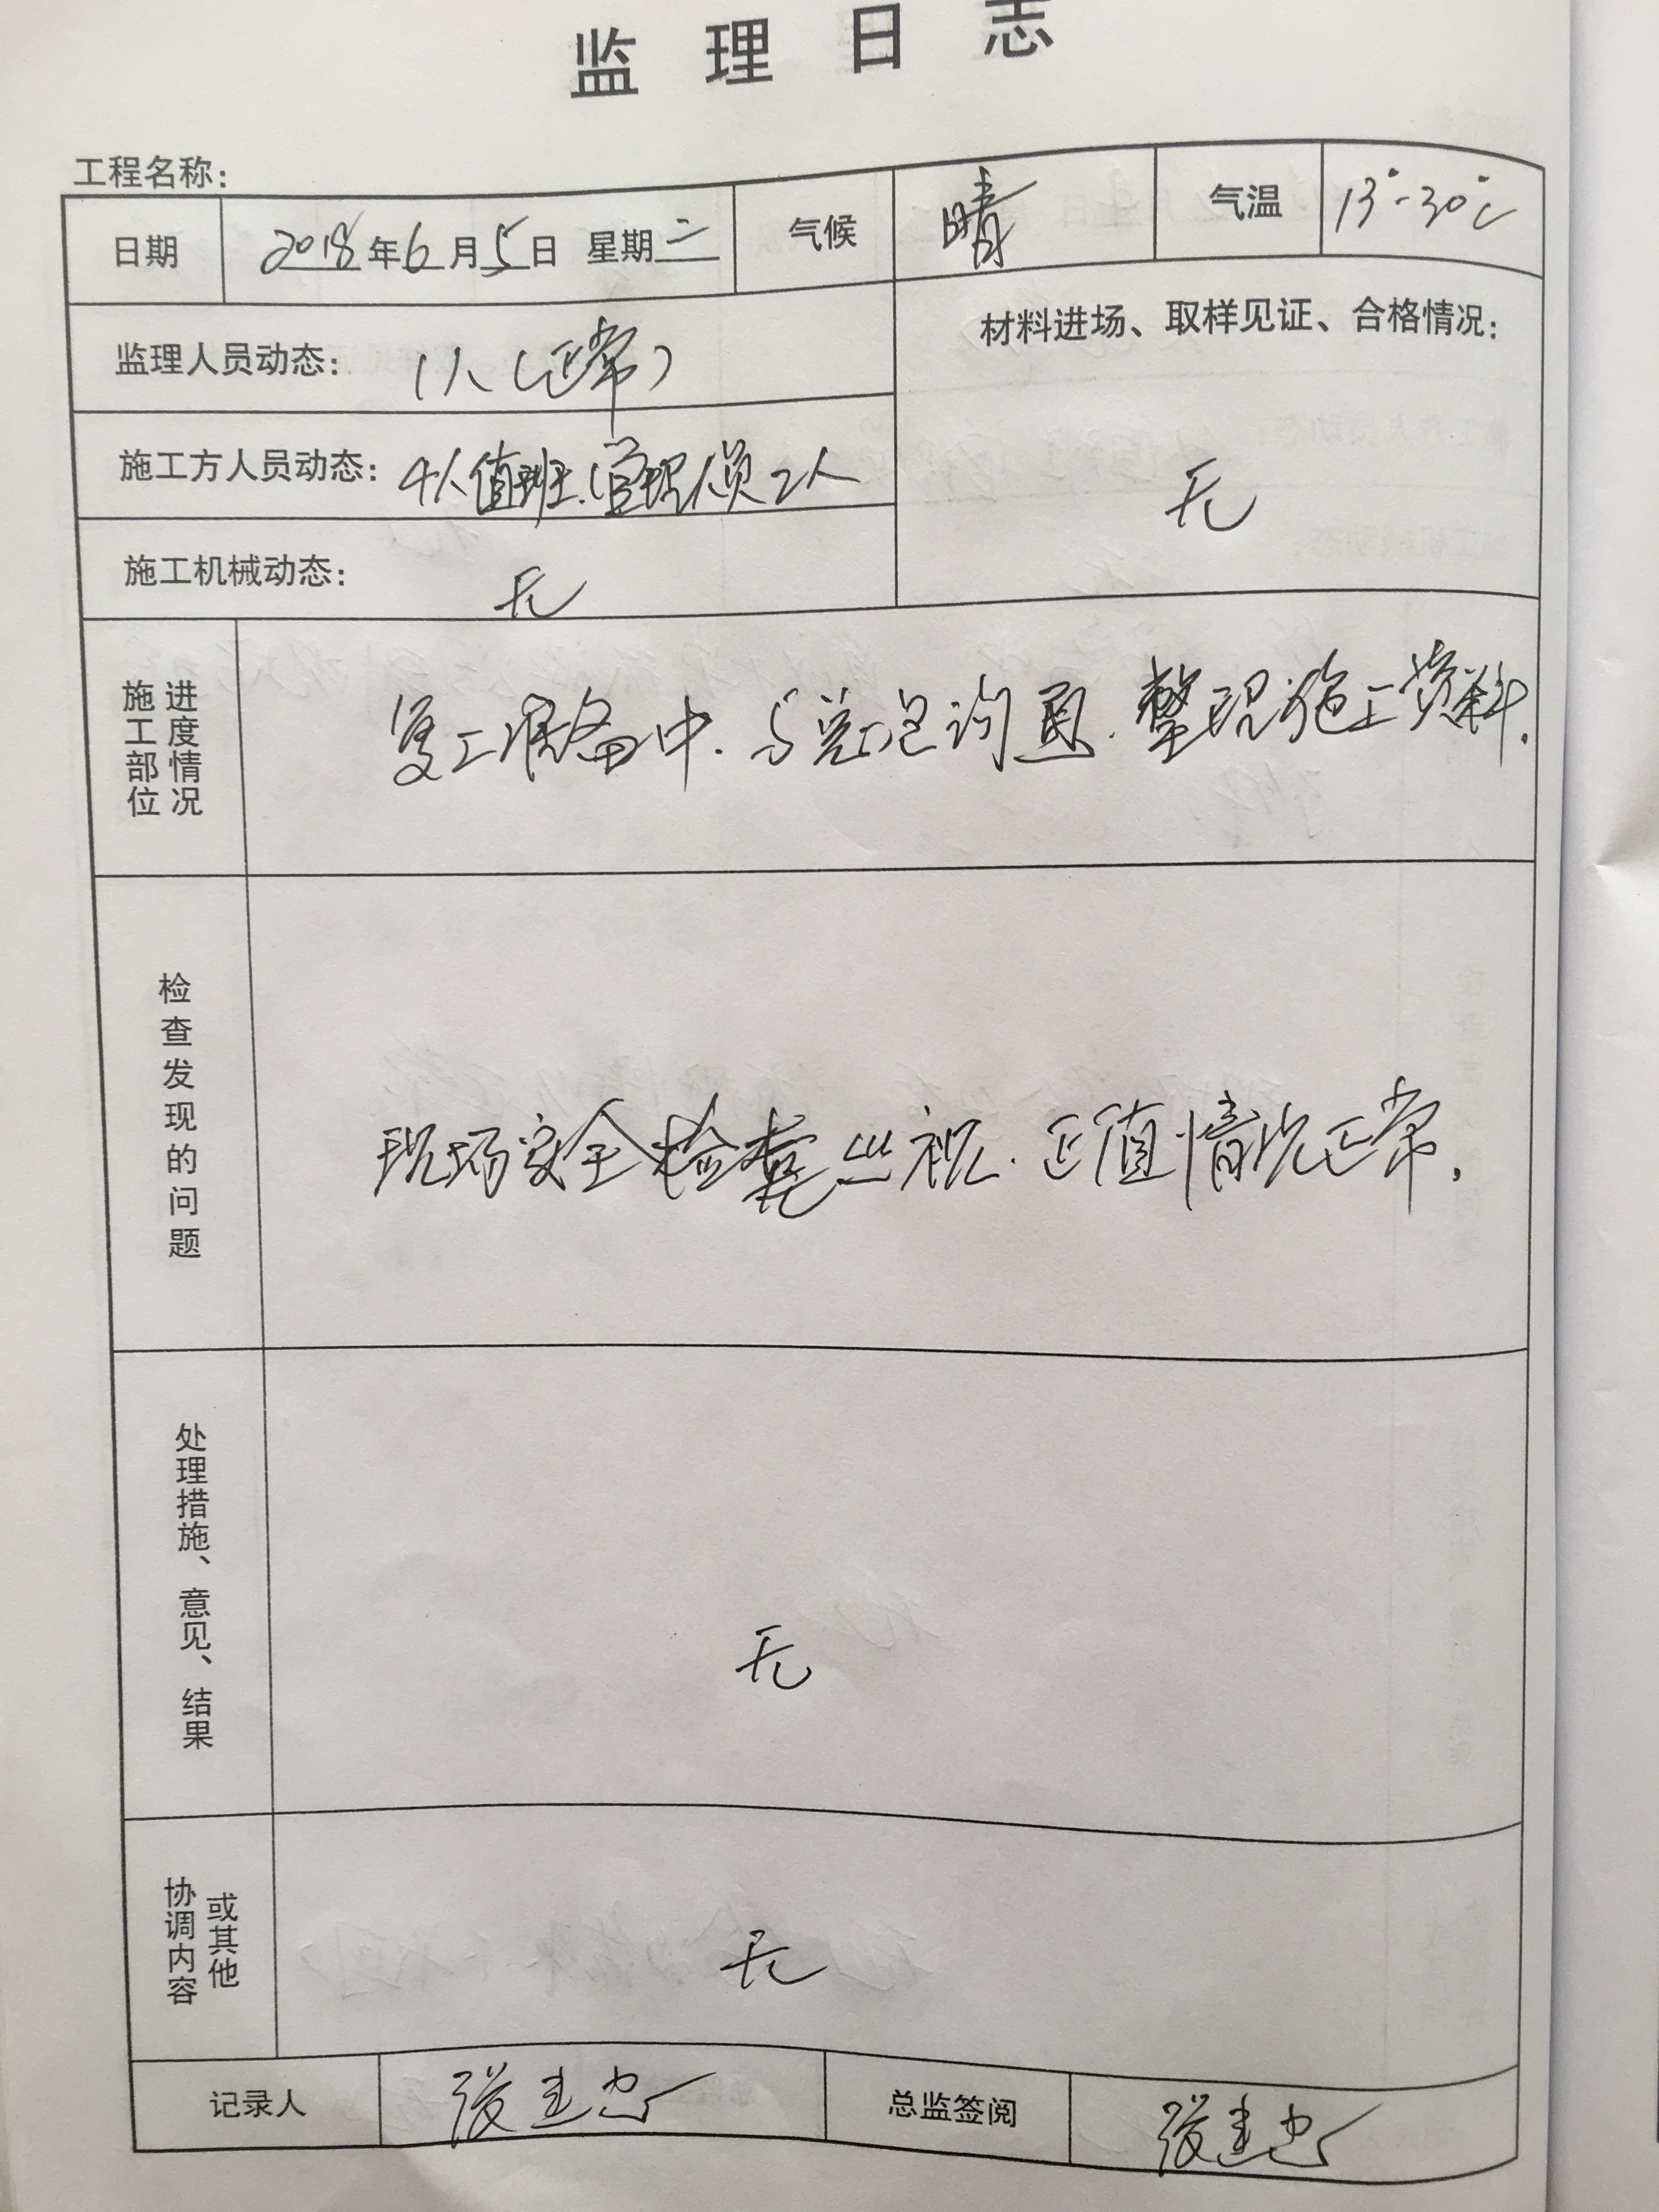 监理日志
工程名称：
日期 2018年6月5日 星期二 气候 晴 气温 13°-30℃
监理人员动态： 1人（正常）
材料进场、取样见证、合格情况：
无
施工方人员动态： 4人值班.管理人员2人
施工机械动态： 无
施工部位进度情况
复工准备中.与总包沟通.整理施工资料.
检查发现的问题
现场安全检查巡视.正值情况正常.
处理措施、意见、结果
无
协调内容或其他
无
记录人 张建忠 总监签阅 张建忠